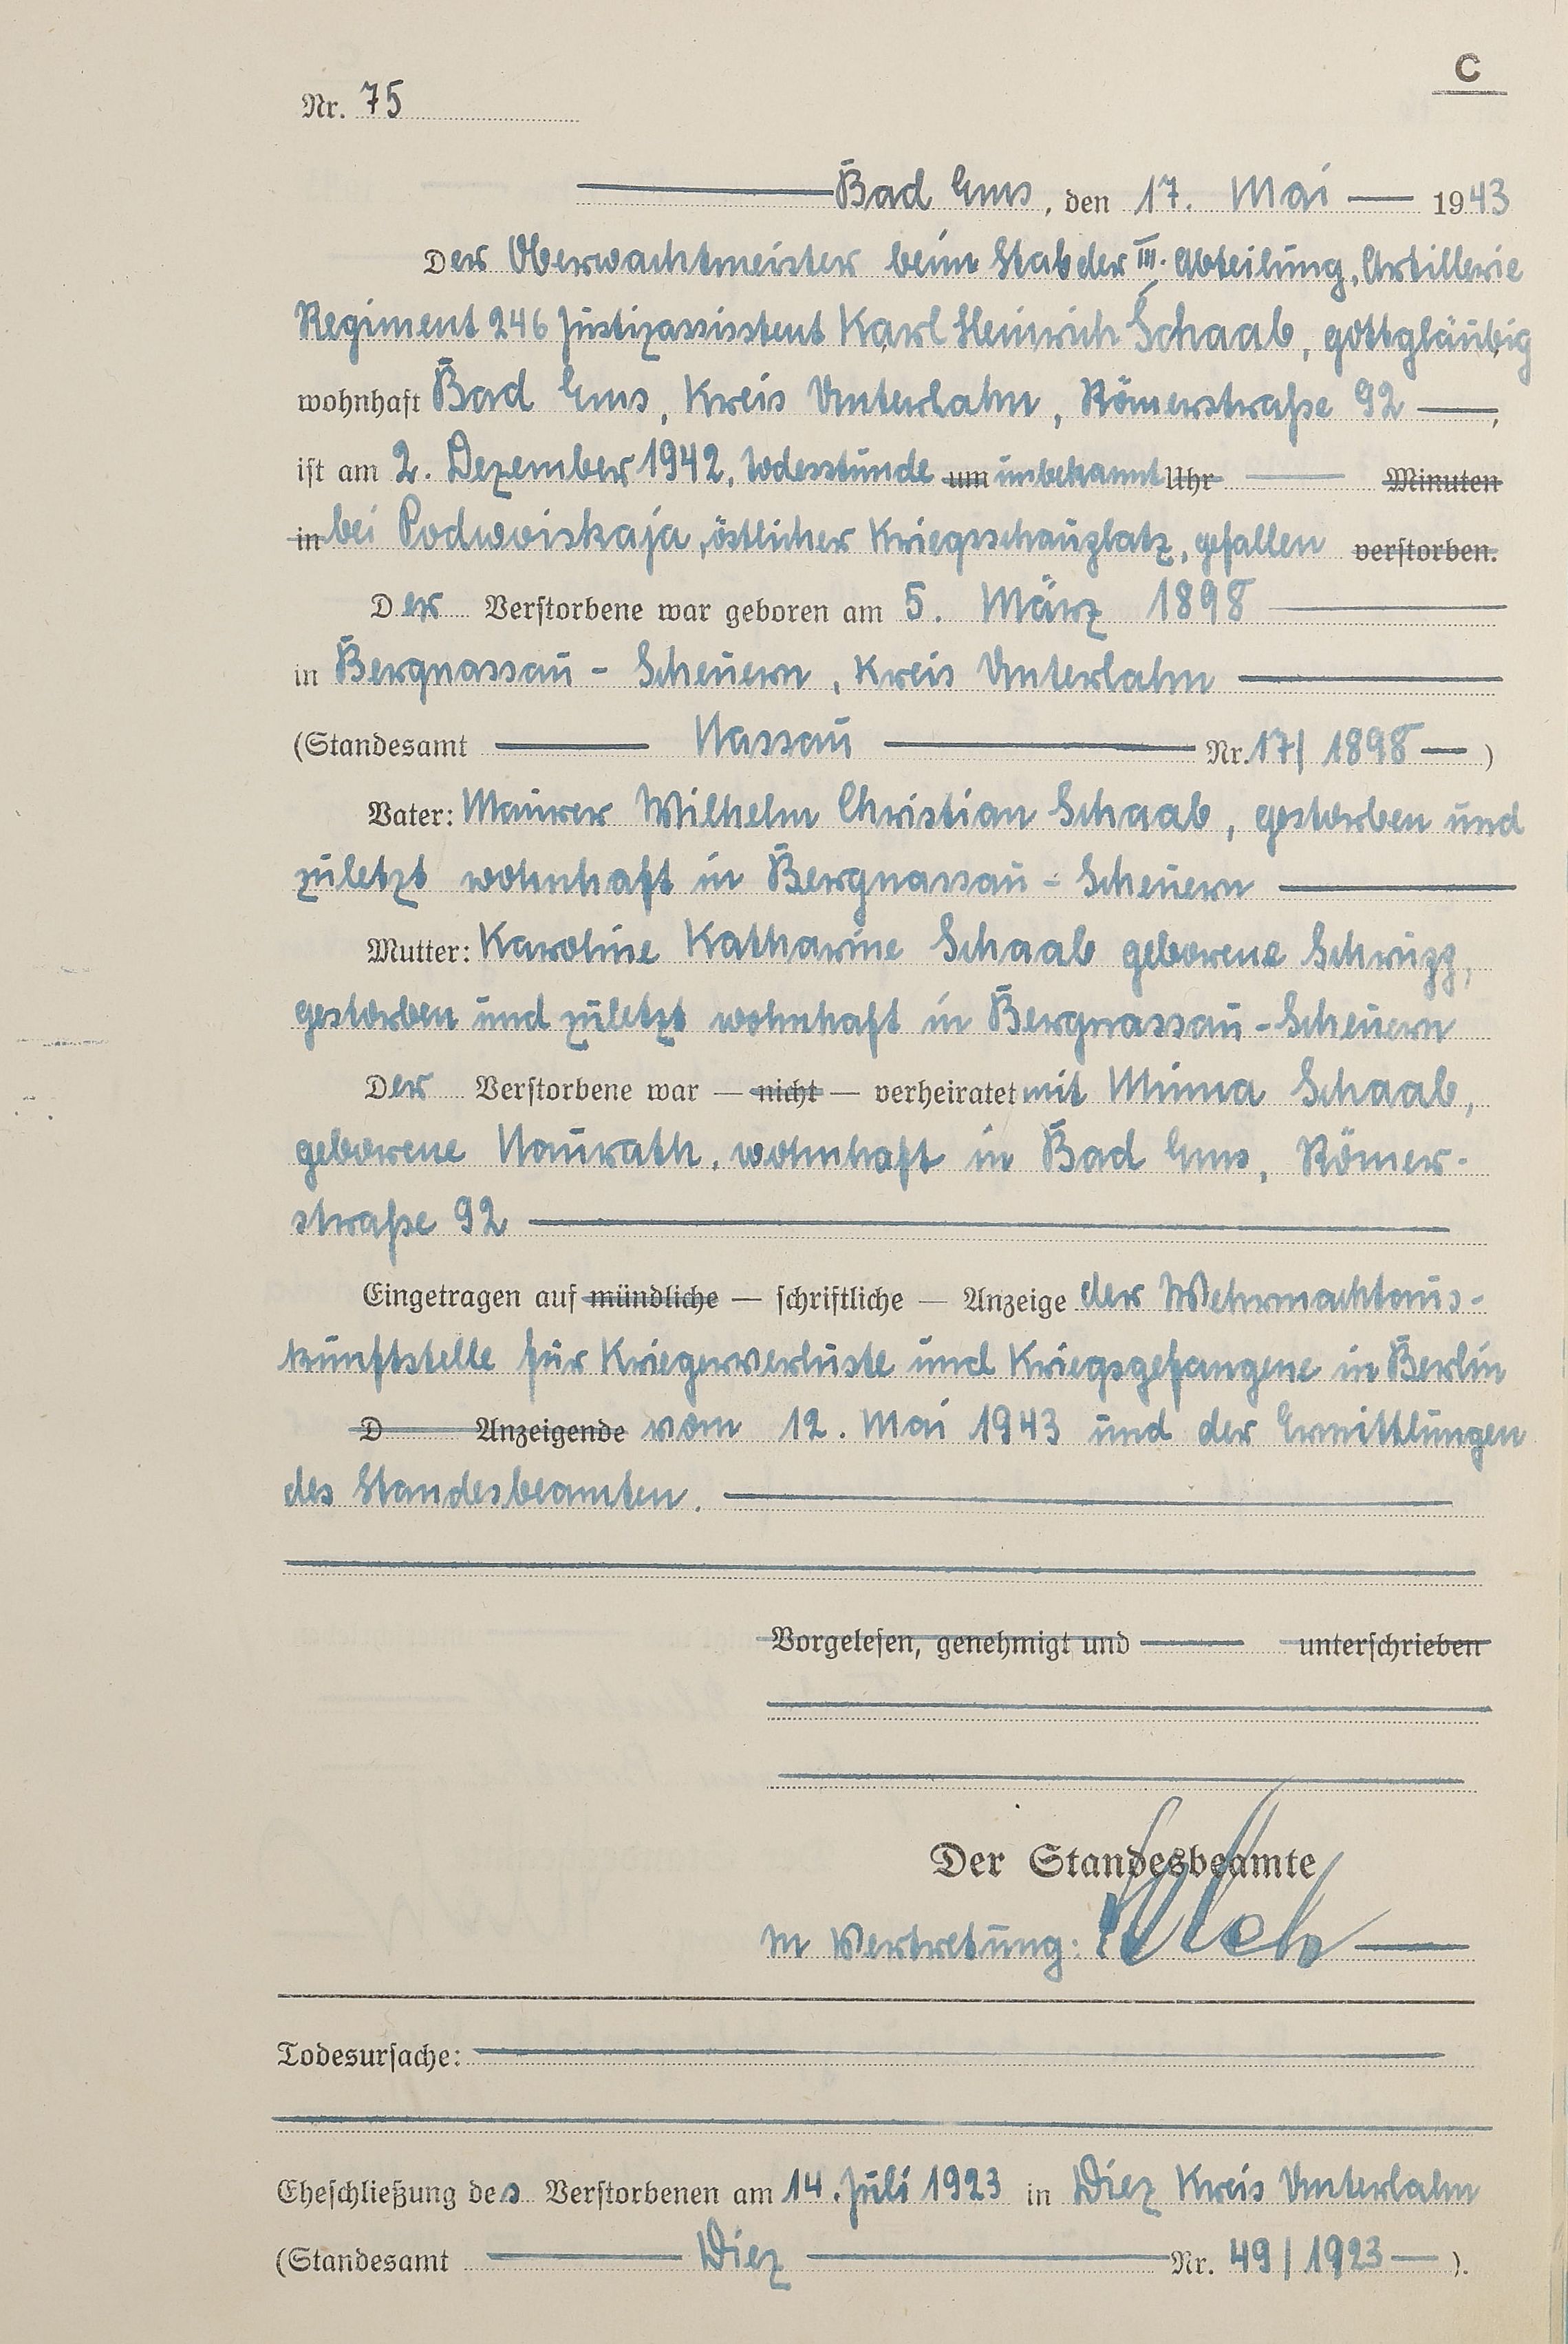 C
Nr. 75
Bad Ems, den 17. Mai 1943
Der Oberwachtmeister beim Stab der III. Abteilung, Artillerie
Regiment 246 Justizassistent Karl Heinrich Schaab, gottgläubig,
wohnhaft Bad Ems, Kreis Unterlahn, Römerstraße 92 —,
ist am 2. Dezember 1942, Todesstunde um unbekannt Uhr — Minuten
in bei Podwoiskaja, östlicher Kriegsschauplatz, gefallen verstorben.
Der Verstorbene war geboren am 5. März 1898
in Bergnassau - Scheuern, Kreis Unterlahn
(Standesamt — Nassau — Nr. 17/1898 — )
Vater: Maurer Wilhelm Christian Schaab, gestorben und
zuletzt wohnhaft in Bergnassau - Scheuern
Mutter: Karoline Katharine Schaab geborene
gestorben und zuletzt wohnhaft in Bergnassau-Scheuern
Der Verstorbene war — nicht — verheiratet mit Minna Schaab,
geborene Naurath, wohnhaft in Bad Ems, Römer-
straße 92
Eingetragen auf mündliche — schriftliche — Anzeige der Wehrmachtaus-
kunftstelle für Kriegerverluste und Kriegsgefangene in Berlin
D Anzeigende vom 12. Mai 1943 und der Ermittlungen
des Standesbeamten.
Vorgelesen, genehmigt und — unterschrieben
Der Standesbeamte
In Vertretung:
Todesursache:
Eheschließung des Verstorbenen am 14. Juli 1923 in Diez Kreis Unterlahn
(Standesamt — Diez — Nr. 49/1923 — ).